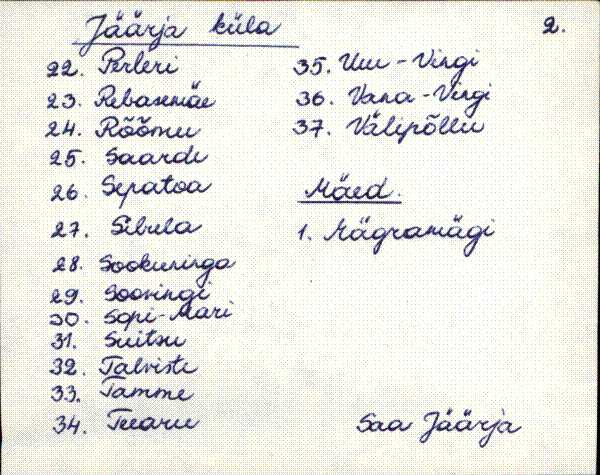 Jäärja küla
2.
22. Perleri
23. Rebasemäe
24. Rõõmu
25. Saarde
26. Sepatoa
27. Sibula
28. Sookuninga
29. Soovingi
30. Sopi-Mari
31. Suitsu
32. Talviste
33. Tamme
34. Teearu
35. Uuu-Vingi
36. Vana-Vingi
37. Välipõllu
Mäed.
1. Mägramägi
Saa Jäärja